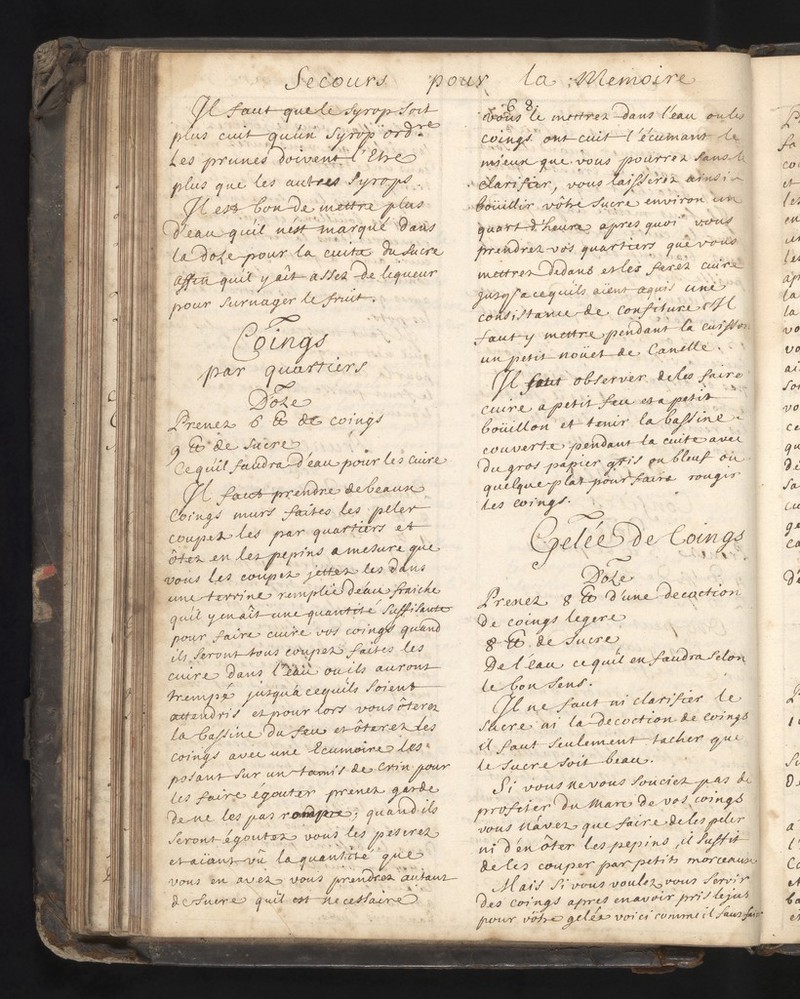 Secours pour la Memoire
68
Il faut que le syrop soit
plus cuit quun syrop ordre
Les prunes doivent l'Etre
plus que les autres syrops.
Il est bon de mettre plus
d'eau quil nést marqué dans
la doze pour la cuite du sucre
affin quil y aît assez de liqueur
pour surnager le fruit.
Coings
par quartiers
Doze
Prenez 6 ℔ de coings
9 ℔ de sucre
Ce quil faudra d'eau pour les cuire
Il faut prendre de beaux
Coings murs faites les peler
coupez les par quartiers et
ôtez en les pepins a mesure que
vous les coupez jettez les dans
une terrine remplie d'eau fraiche
quil y en aît une quantité suffisante
pour faire cuire vos coings quand
ils seront tous coupez faites les
cuire dans l'eau ou ils auront
trempé jusqu'a cequils soient
attendris et pour lors vous ôterez
la bassine du feu et ôterez les
coings avec une Ecumoire les
posant sur un tamis de crin pour
les faire égouter prenez garde
de ne les pas rompre; quand ils
seront égoutez vous les peserez
et aiant vû la quantité que
vous en avez vous prendrez autant
de sucre quil est necessaire
vous le mettrez dans l'eau ou les
coings ont cuit l'écumant le
mieux que vous pourrez sans le
clarifier, vous laisserez ainsi
boüillir vôtre sucre environ un
quart d'heure apres quoi vous
prendrez vos quartiers que vous
mettrez dedans et les ferez cuire
jusqu'acequils aient aquis une
consistance de confiture Il
faut y mettre pendant la cuisson
un petit noüet de Canelle.
Il faut observer de les faire
cuire a petit feu et a petit
boüillon et tenir la bassine
couverte pendant la cuite avec
du gros papier gris ou bleuf ou
quelque plat pour faire rougir
les coings.
Gelée de Coings
Doze
Prenez 8 ℔ d'une decoction
de coings legere
8 ℔ de sucre
De l'eau ce quil en faudra selon
le bon sens.
Il ne faut ni clarifier le
sucre ni la decoction de coings
il faut seulement tacher que
le sucre soit beau.
Si vous ne vous souciez pas de
profiter du marc de vos coings
vous n'avez que faire de les peler
ni d'en ôter les pepins, il suffit
de les couper par petits morceaux
Mais si vous voulez vous servir
des coings apres en avoir pris le jus
pour vôtre gelée voici comme il faut faire